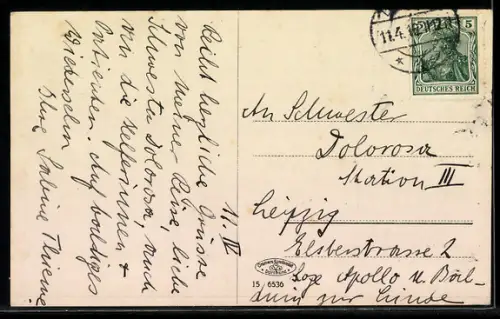 11. IV
Recht herzliche Grüsse
von meiner Reise, liebe
Schwester Dolorosa, auch
an die Helferinnen &
Patienten. Auf baldiges
Wiedersehn
Ihre Sabine Thieme
11.4.
5
DEUTSCHES REICH
An Schwester
Dolorosa
Station III
Leipzig
Elsterstrasse 2
Loge Apollo u. Bal-
duin zur Linde
15 / 6536